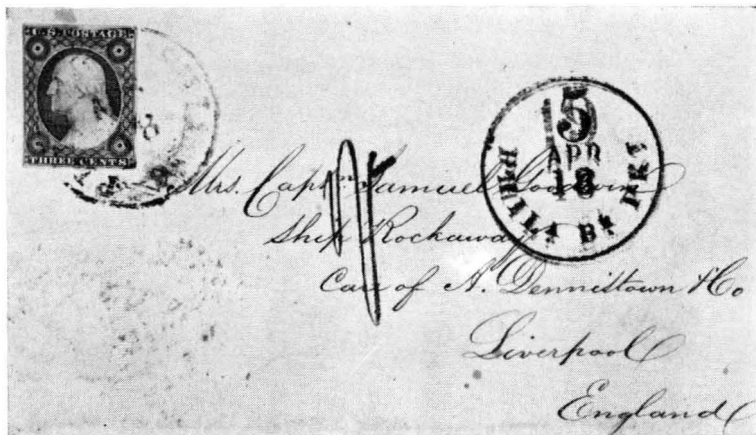 U.S. POSTAGE
THREE CENTS
5
APR
13
PHILA Br PKT
Mrs. Captn Samuel Goodwin
Ship Rockaway
Care of A. Dennistown & Co
Liverpool
England